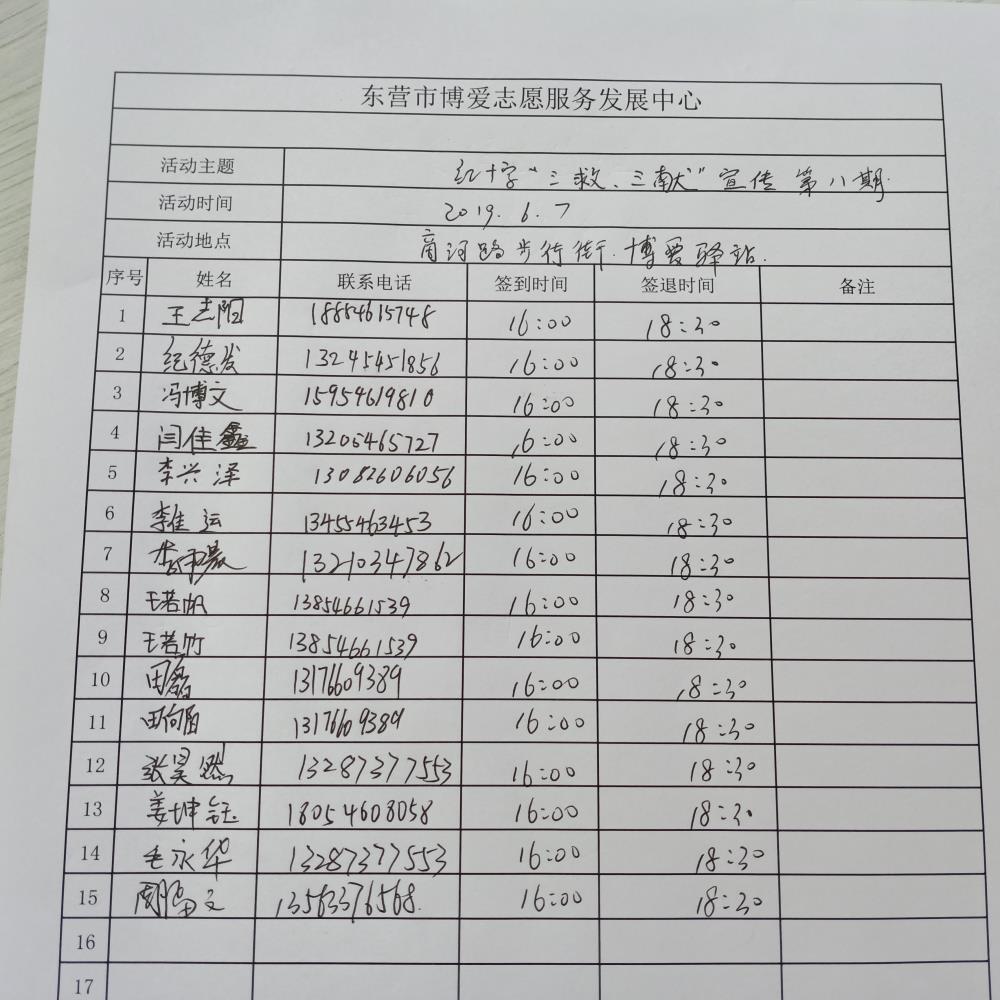 东营市博爱志愿服务发展中心
活动主题 红十字“三救、三献”宣传第八期.
活动时间 2019.6.7
活动地点 商河路步行街.博爱驿站.
序号 姓名 联系电话 签到时间 签退时间 备注
1 王志阳 18854615748 16:00 18:30
2 纪德发 13245451856 16:00 18:30
3 冯博文 15954619810 16:00 18:30
4 闫佳鑫 13205465727 16:00 18:30
5 李兴泽 13082606056 16:00 18:30
6 李佳运 13455463453 16:00 18:30
7 13210347862 16:00 18:30
8 王若帆 13854661539 16:00 18:30
9 王若竹 13854661539 16:00 18:30
10 田磊 13176609389 16:00 18:30
11 田 13176609389 16:00 18:30
12 张昊然 13287377553 16:00 18:30
13 姜坤钰 18054608058 16:00 18:30
14 毛永华 13287377553 16:00 18:30
15 周富文 13563376568. 16:00 18:30
16
17